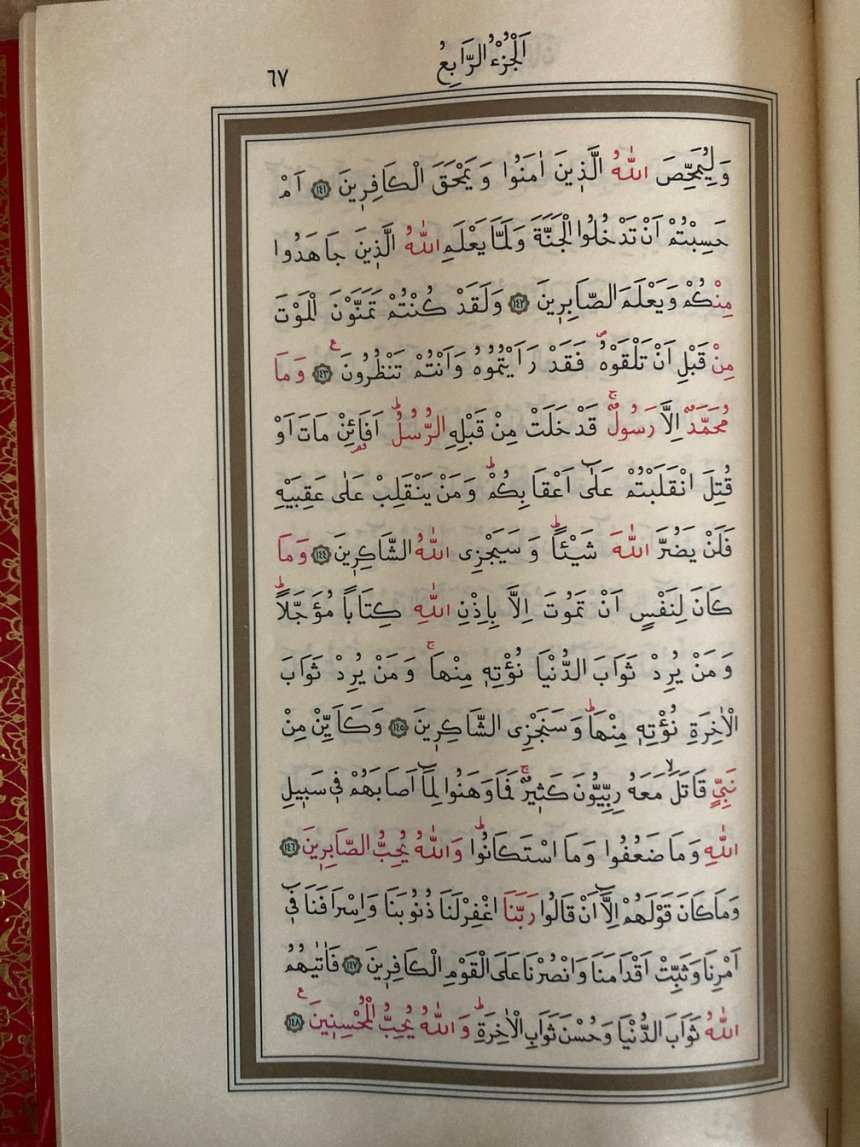 اَلْجُزْءُ الرَّابِعُ
٦٧
وَلِيُمَحِّصَ اللّٰهُ الَّذٖينَ اٰمَنُوا وَيَمْحَقَ الْكَافِرٖينَ ١٤١ اَمْ
حَسِبْتُمْ اَنْ تَدْخُلُوا الْجَنَّةَ وَلَمَّا يَعْلَمِ اللّٰهُ الَّذٖينَ جَاهَدُوا
مِنْكُمْ وَيَعْلَمَ الصَّابِرٖينَ ١٤٢ وَلَقَدْ كُنْتُمْ تَمَنَّوْنَ الْمَوْتَ
مِنْ قَبْلِ اَنْ تَلْقَوْهُ فَقَدْ رَاَيْتُمُوهُ وَاَنْتُمْ تَنْظُرُونَ ١٤٣ وَمَا
مُحَمَّدٌ اِلَّا رَسُولٌ قَدْ خَلَتْ مِنْ قَبْلِهِ الرُّسُلُ اَفَائِنْ مَاتَ اَوْ
قُتِلَ انْقَلَبْتُمْ عَلٰى اَعْقَابِكُمْ وَمَنْ يَنْقَلِبْ عَلٰى عَقِبَيْهِ
فَلَنْ يَضُرَّ اللّٰهَ شَيْـًٔا وَسَيَجْزِى اللّٰهُ الشَّاكِرٖينَ ١٤٤ وَمَا
كَانَ لِنَفْسٍ اَنْ تَمُوتَ اِلَّا بِاِذْنِ اللّٰهِ كِتَابًا مُؤَجَّلًا
وَمَنْ يُرِدْ ثَوَابَ الدُّنْيَا نُؤْتِهٖ مِنْهَا وَمَنْ يُرِدْ ثَوَابَ
الْاٰخِرَةِ نُؤْتِهٖ مِنْهَا وَسَنَجْزِى الشَّاكِرٖينَ ١٤٥ وَكَاَيِّنْ مِنْ
نَبِيٍّ قَاتَلَ مَعَهُ رِبِّيُّونَ كَثٖيرٌ فَمَا وَهَنُوا لِمَا اَصَابَهُمْ فٖى سَبٖيلِ
اللّٰهِ وَمَا ضَعُفُوا وَمَا اسْتَكَانُوا وَاللّٰهُ يُحِبُّ الصَّابِرٖينَ ١٤٦
وَمَا كَانَ قَوْلَهُمْ اِلَّا اَنْ قَالُوا رَبَّنَا اغْفِرْ لَنَا ذُنُوبَنَا وَاِسْرَافَنَا فٖى
اَمْرِنَا وَثَبِّتْ اَقْدَامَنَا وَانْصُرْنَا عَلَى الْقَوْمِ الْكَافِرٖينَ ١٤٧ فَاٰتٰيهُمُ
اللّٰهُ ثَوَابَ الدُّنْيَا وَحُسْنَ ثَوَابِ الْاٰخِرَةِ وَاللّٰهُ يُحِبُّ الْمُحْسِنٖينَ ١٤٨